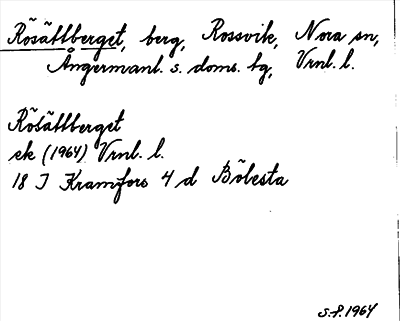 Rösättberget, berg, Rossvik, Nora sn,
Ångermanl. s. doms. tg, Vrnl. l.
Rösättberget
ek (1964) Vrnl. l.
18 I Kramfors 4 d Bölesta
S.P. 1964